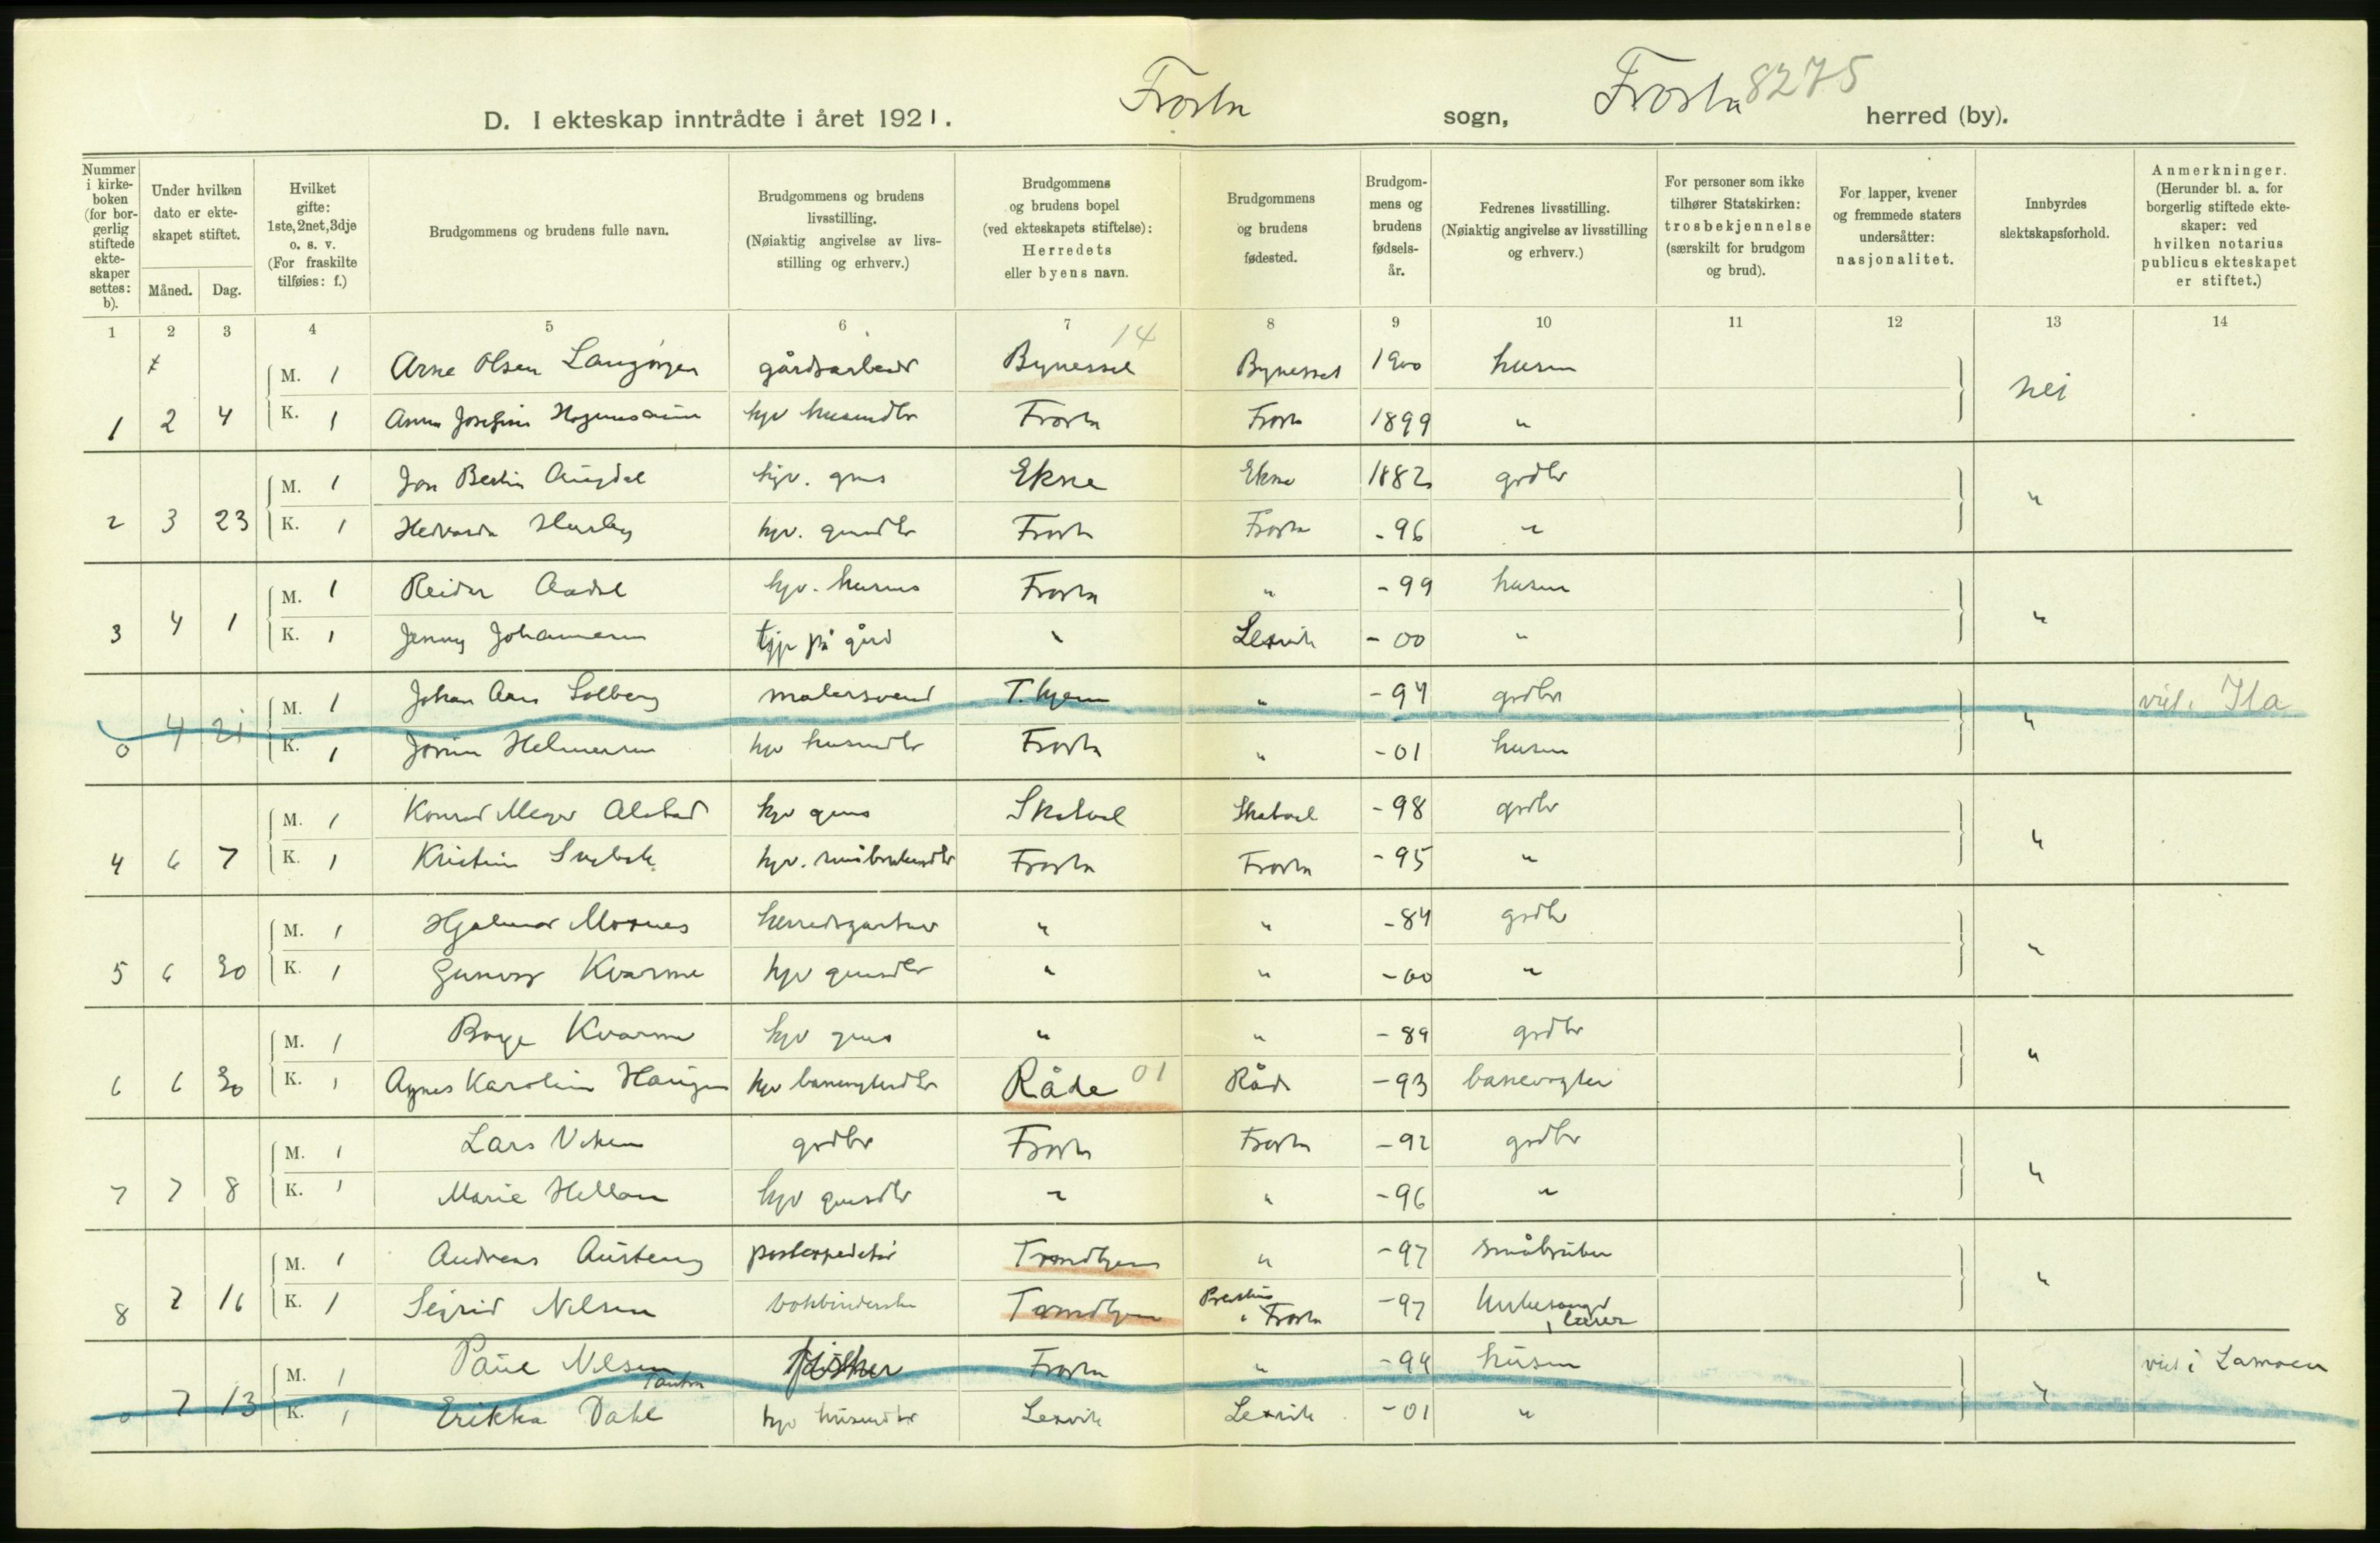 D. I ekteskap inntrådte i året 1921. Frosta sogn, Frosta 8275 herred (by).
Nummer i kirke-boken (for bor-gerlig stiftede ekte-skaper settes: b).
Under hvilken dato er ekte-skapet stiftet.
Måned. Dag.
Hvilket gifte: 1ste, 2net, 3dje o. s. v. (For fraskilte tilføies: f.)
Brudgommens og brudens fulle navn.
Brudgommens og brudens livsstilling. (Nøiaktig angivelse av livs-stilling og erhverv.)
Brudgommens og brudens bopel (ved ekteskapets stiftelse): Herredets eller byens navn.
Brudgommens og brudens fødested.
Brudgom-mens og brudens fødsels-år.
Fedrenes livsstilling. (Nøiaktig angivelse av livsstilling og erhverv.)
For personer som ikke tilhører Statskirken: trosbekjennelse (særskilt for brudgom og brud).
For lapper, kvener og fremmede staters undersåtter: nasjonalitet.
Innbyrdes slektskapsforhold.
Anmerkninger. (Herunder bl. a. for borgerlig stiftede ekte-skaper: ved hvilken notarius publicus ekteskapet er stiftet.)
1 2 3 4 5 6 7 8 9 10 11 12 13 14
14
M. 1 Arne Olsen Langørgen gårdsarbeid Bynesset Bynesset 1900 husm nei
1 2 4 K. 1 Anna Josefine hjv husmdtr Frosta Frosta 1899 "
M. 1 Jon Bertin Augdal hjv. gms Ekne Ekne 1882 grdbr "
2 3 23 K. 1 Hedvarda Husby hjv. gmdtr Frosta Frosta -96 "
M. 1 Reidar Aadal hjv. husms Frosta " -99 husm "
3 4 1 K. 1 Jenny Johannesen tjp på gård " Leksvik -00 "
M. 1 Johan Solberg malersvend T.hjem " -94 grdbr viet i Ila
0 4 21 K. 1 Helmersen hjv husmdtr Frosta " -01 husm "
M. 1 Konrad Meyer Alstad hjv gms Skatval Skatval -98 grdbr "
4 6 7 K. 1 Kristine hjv. småbrukerdtr Frosta Frosta -95 "
M. 1 Hjalmar Moxnes herredsgartner " " -84 grdbr "
5 6 30 K. 1 Gunvor Kvarme hjv gmsdtr " " -00 "
M. 1 Børge Kvarme hjv gms " " -89 grdbr "
6 6 30 K. 1 Agnes Karoline Haugen hjv banevogterdtr Råde 01 Råde -93 banevogter
M. 1 Lars Viken grdbr Frosta Frosta -92 grdbr "
7 7 8 K. 1 Marie Hellan hjv gmsdtr " " -96 "
M. 1 Andreas Austeng postexpeditør Trondhjem " -97 småbruker "
8 7 16 K. 1 Sigrid Nilsen bokbinderske Trondhjem Frosta -97 kirkesanger, lærer
M. 1 Paul Nilsen Tautra fisker Frosta " -94 husm viet i Lamoen
0 7 13 K. 1 Erikka Dahl hjv husmdtr Leksvik Leksvik -01 " "